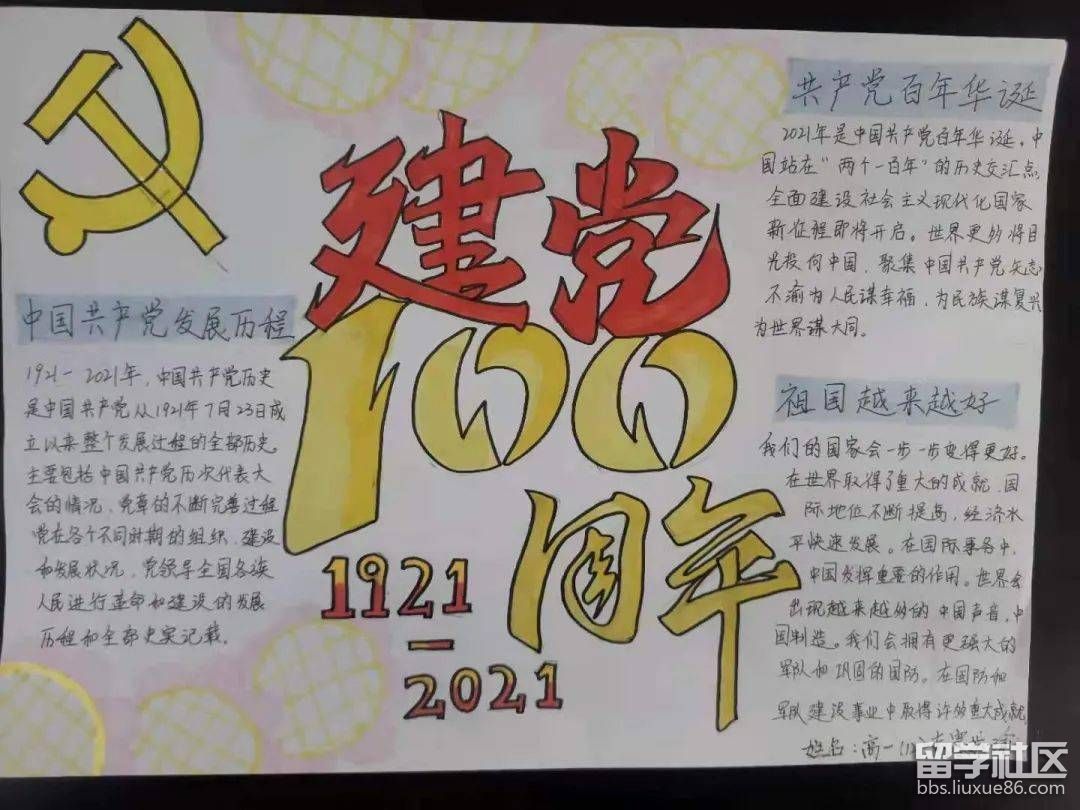 建党
100
周年
1921
—
2021
中国共产党发展历程
1921－2021年，中国共产党历史
是中国共产党从1921年7月23日成
立以来整个发展过程的全部历史。
主要包括中国共产党历次代表大
会的情况，党章的不断完善过程
党在各个不同时期的组织、建设
和发展状况，党领导全国各族
人民进行革命和建设的发展
历程和全部史实记载。
共产党百年华诞
2021年是中国共产党百年华诞。中
国站在“两个一百年”的历史交汇点
全面建设社会主义现代化国家
新征程即将开启。世界更多将目
光投向中国，聚集中国共产党矢志
不渝为人民谋幸福，为民族谋复兴
为世界谋大同。
祖国越来越好
我们的国家会一步一步变得更好。
在世界取得了重大的成就，国
际地位不断提高，经济水
平快速发展。在国际事务中，
中国发挥重要的作用。世界会
出现越来越多的中国声音，中
国制造。我们会拥有更强大的
军队和巩固的国防。在国防和
军队建设事业中取得许多重大成就
姓名：高一(11)
留学社区
bbs.liuxue86.com